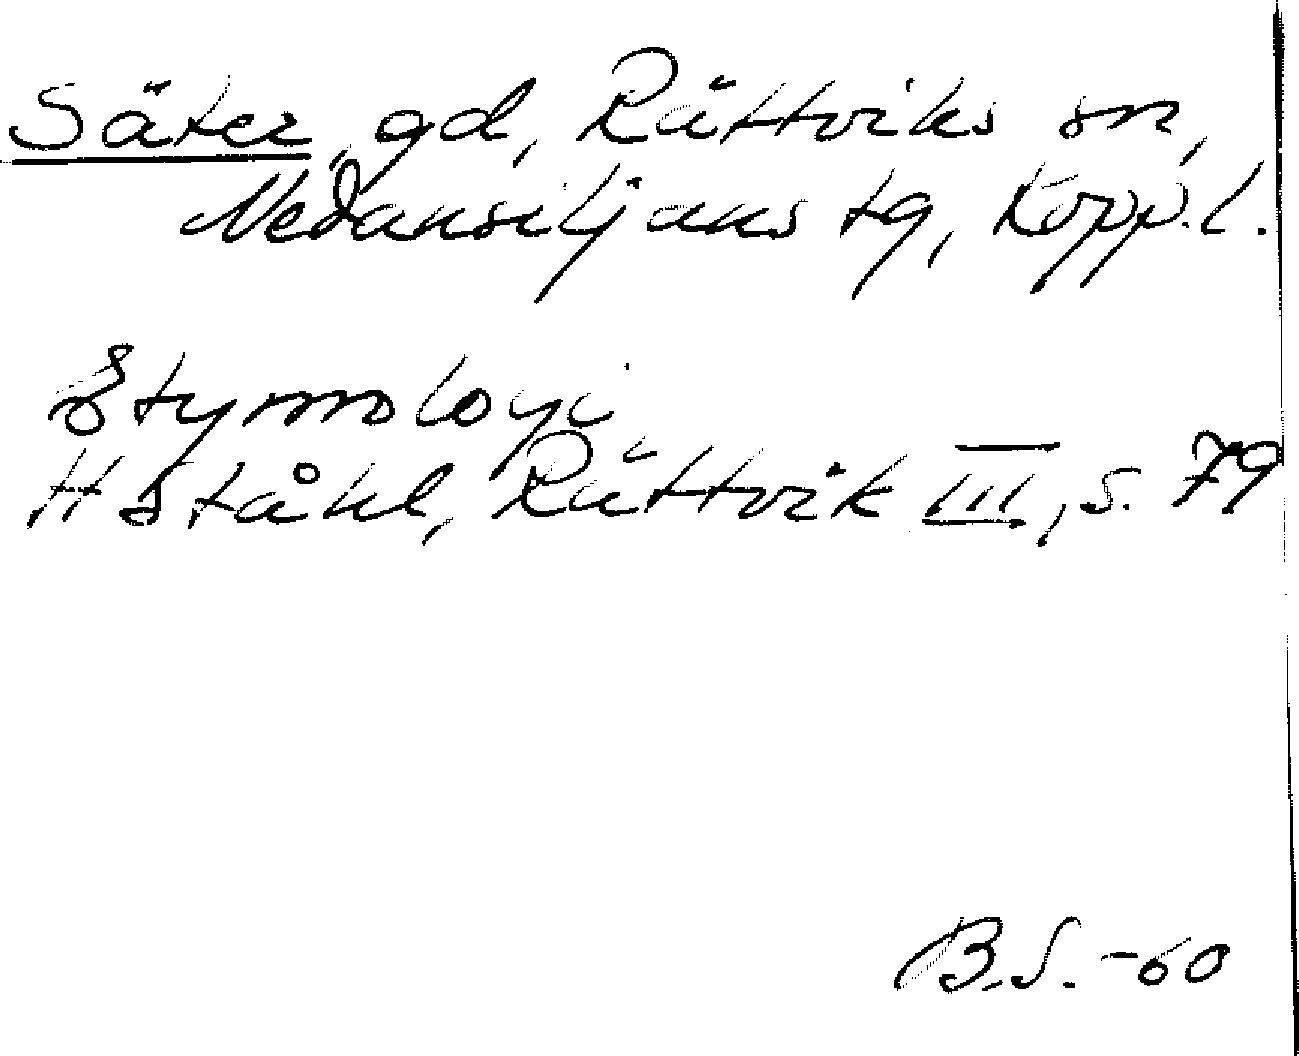 Säter, gd, Rättviks sn,
Nedansiljans tg, Kopp.l.
Etymologi
H Ståhl, Rättvik III, s. 79
B.S. -60